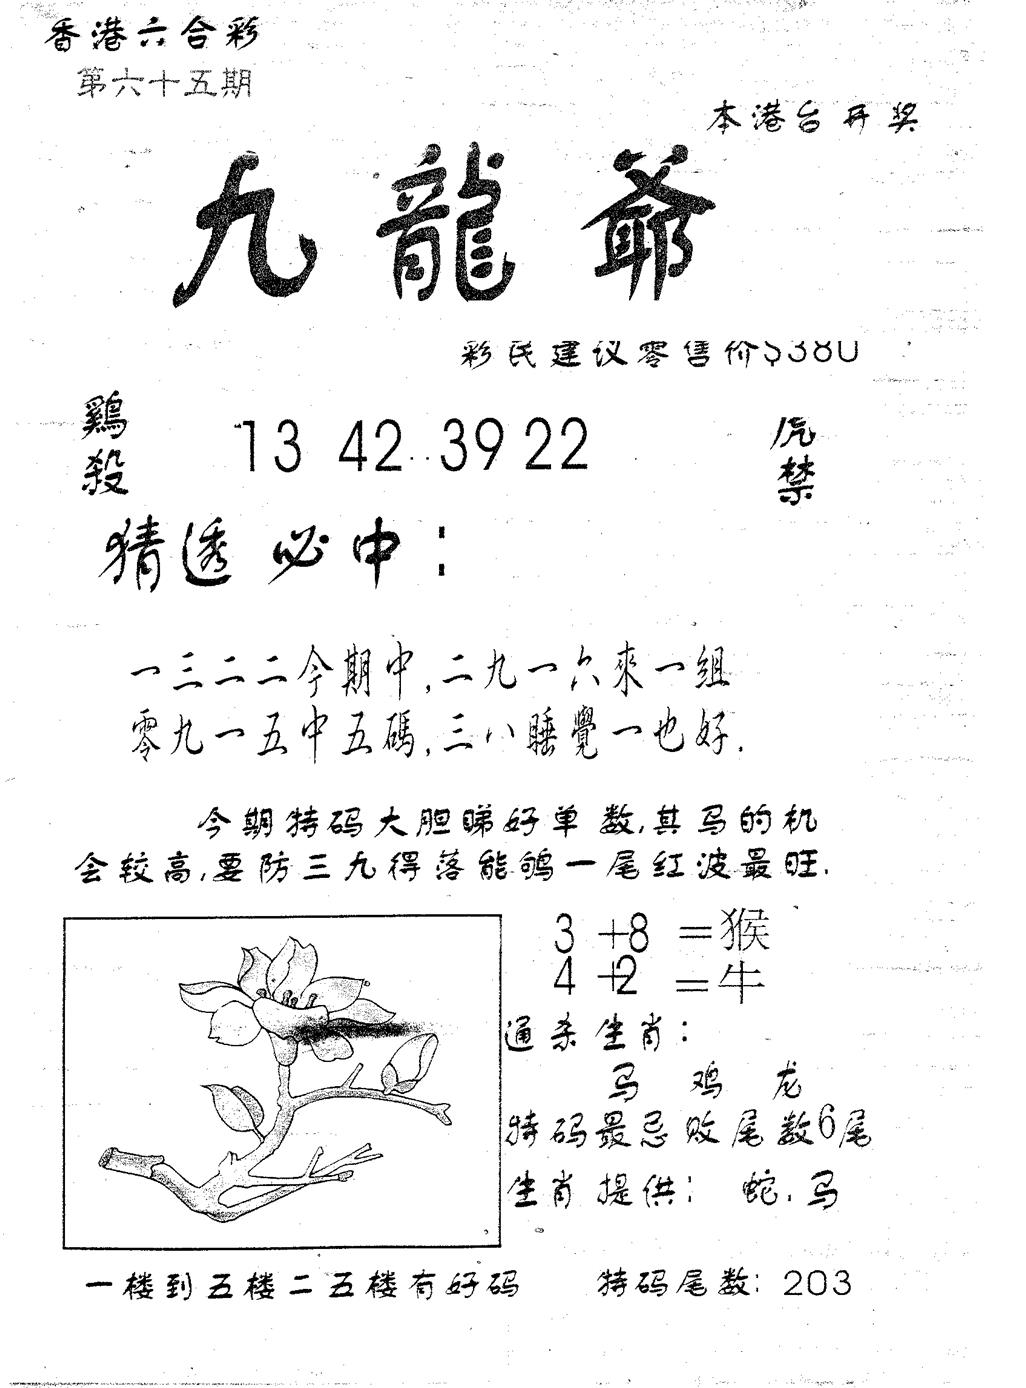 香港六合彩
第六十五期
本港台开奖
九龍爺
彩民建议零售价$380
鷄殺
13 42 39 22
虎禁
猜透必中：
一三二二今期中,二九一六來一組
零九一五中五碼,三八睡覺一也好.
今期特码大胆睇好单数,其马的机
会较高,要防三九得落能鸲一尾红波最旺.
3+8=猴
4+2=牛
通杀生肖：
马 鸡 龙
特码最忌败尾数6尾
生肖提供：蛇.马
一楼到五楼二五楼有好码 特码尾数: 203